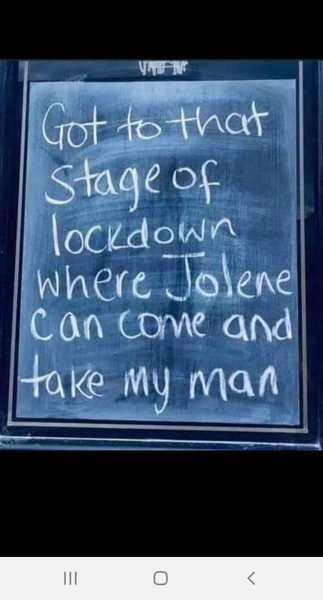 Got to that
Stage of
lockdown
where Jolene
can come and
take my man